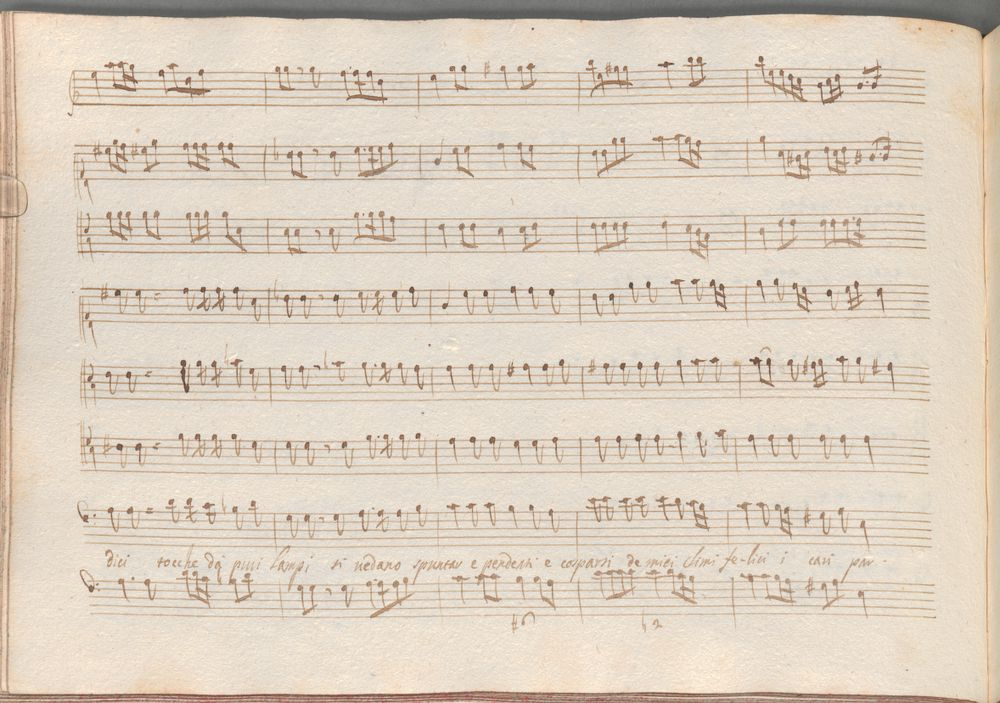 dici tocche da puri lampi si vedano spuntar e pendenti e cosparsi de miei climi fe-lici i cari par-